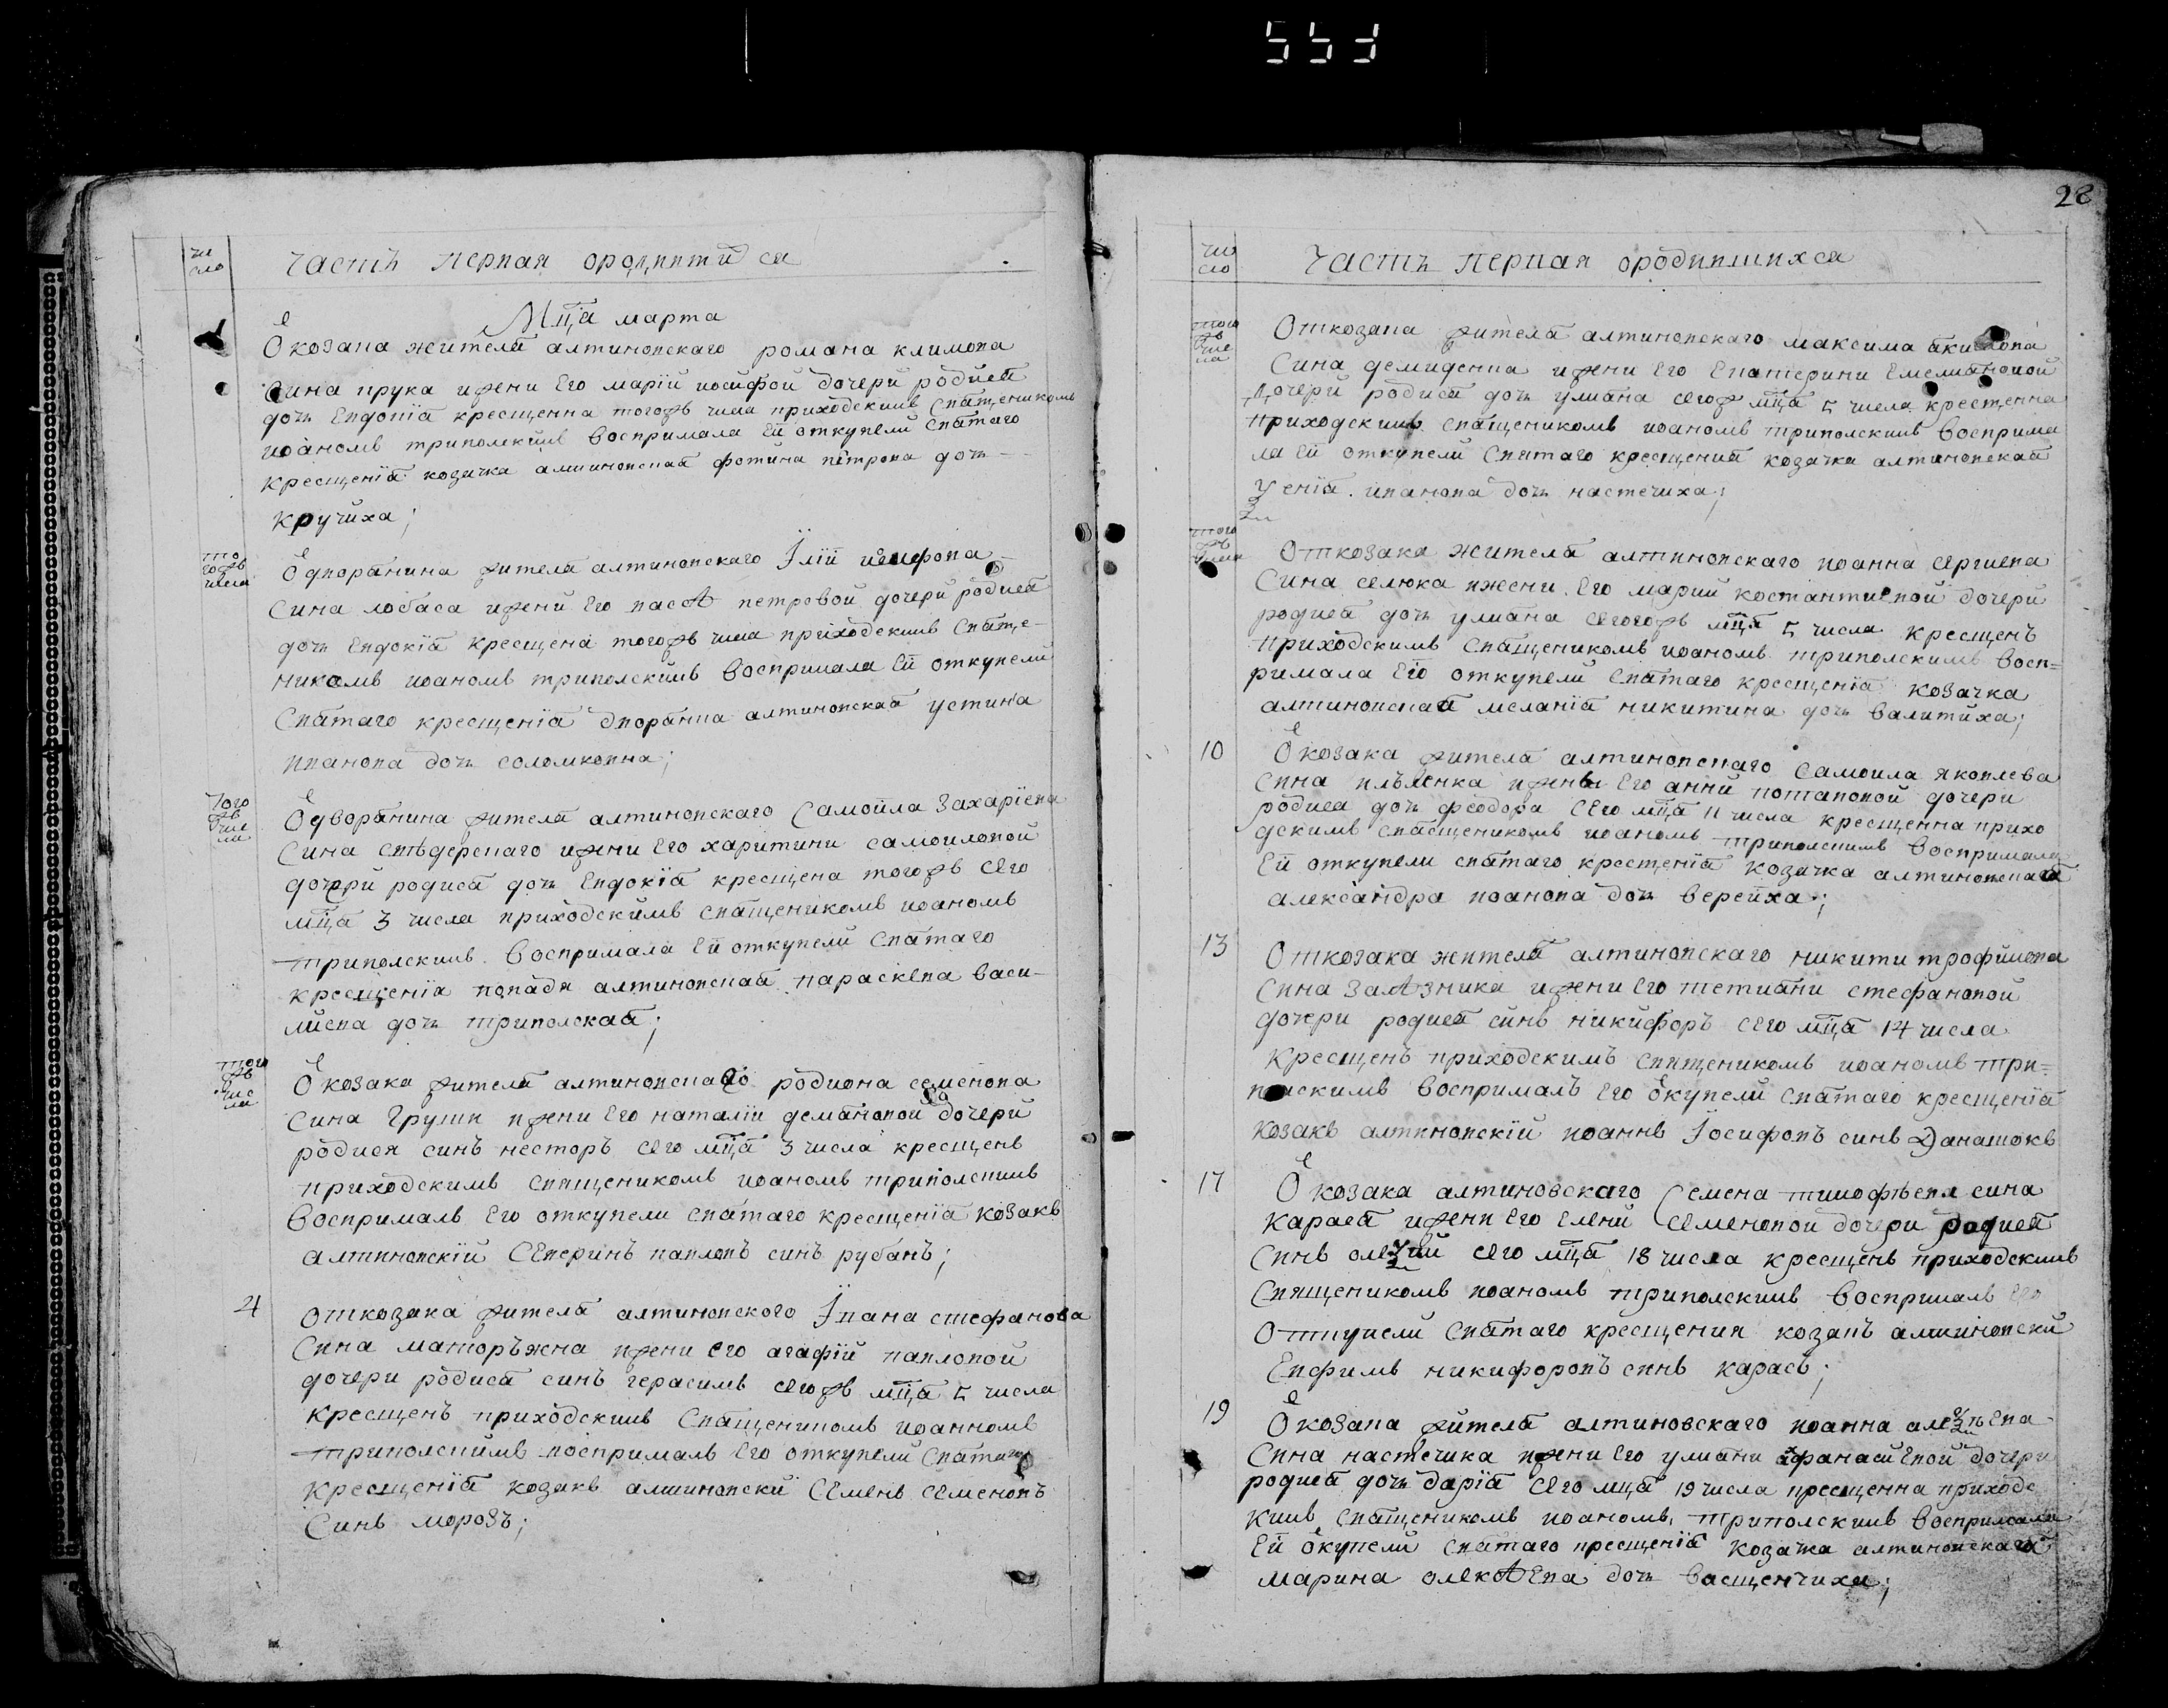 553
28
чи
сло
часть первая ородивши ся
Мца марта
1
Ѿ козака жителя алтиновскаго романа климова
Сина крука и жени Его марїи иосифой дочери родися
дочь Евдокїя крещенна того жъ числа приходскимъ священикомъ
иоаномъ триполскимъ воспримала Ей от купели святаго
крещенїя козачка алтиновская фотина петрова дочь
кручиха;
то
го жъ
числа
Ѿ дворянина жителя алтиновскаго Iлїи
Сина лобаса и жени Его васѦ петровой дочери родися
дочь Евдокїя крещена того жъ числа приходскимъ свяще-
никомъ иоаномъ триполскимъ воспримала Ей от купели
Святаго крещенїя дворянка алтиновская устина
иванова дочь соломковна;
Того
жъ
чис
ла
Ѿ дворянина жителя алтиновскаго Самоила Захарїева
Сина жени Его харитини самоиловой
дочери родися дочь Евдокїя крещена того жъ сего
мца 3 числа приходскимъ священикомъ иоаномъ
триполскимъ воспримала Ей от купели Святаго
крещенїя попадя алтиновская параскева васи-
лиева дочь триполская;
того
жъ
чис
ла
Ѿ козака жителя алтиновскаго родиона семенова
Сина Груши и жени Его наталїи демяновой дочери
родися синъ несторъ сего мца 3 числа крещенъ
приходскимъ священикомъ иоаномъ триполскимъ
воспрималъ Его от купели святаго крещенїя козакъ
алтиновскїй Северинъ павловъ синъ рубанъ;
4
от козака жителя алтиновского Iвана стефанова
Сина маторъжна и жени его агафїи павловой
дочери родися синъ герасимъ сего жъ мца 5 числа
крещенъ приходскимъ Священикомъ иоанномъ
триполскимъ воспрималъ Его от купели Святаго
крещенїя козакъ алтиновски Семенъ семеновъ
Синъ морозъ;
чи
сло
Часть первая ородившихся
того
жъ
чис
ла
От козака жителя алтиновскаго максима
Сина демиденка и жени Его Екатерини Емелияновой
дочери родися дочь улияна сего жъ мца 5 числа крещенна
приходскимъ священикомъ иоаномъ триполскимъ восприма
ла Ей от купели Святаго крещения козачка алтиновская
иванова дочь настечиха;
того
жъ
числа
От козака жителя алтиновскаго иоанна сергиева
Сина селюка и жени Его марии костантиновой дочери
родися дочь улияна сего жъ мца 5 числа крещенъ
приходскимъ священикомъ иоаномъ триполскимъ восп=
римала Его от купели святаго крещенїя козачка
алтиновская меланїя никитина дочь валитиха;
10
Ѿ козака жителя алтиновскаго Самоила яковлева
сина и жени Его анни потаповой дочери
родися дочь феодора сего мца 11 числа крещенна прихо
дскимъ священикомъ иоаномъ триполскимъ воспримала
Ей от купели святаго крещенїя козачка алтиновская
александра иоанова дочь верейха;
13
От козака жителя алтиновскаго никити трофимова
сина заѦзника и жени Его тетияни стефановой
дочери родися синъ никифоръ сего мца 14 числа
крещенъ приходскимъ священикомъ иоаномъ три=
полскимъ воспрималъ Его Ѿ купели святаго крещенїя
козакъ алтиновскїй иоаннъ Iосифовъ синъ Данашокъ
17
Ѿ козака алтиновскаго Семена тимофѣева сина
карася и жени Его елени Семеновой дочери родися
синъ олеѯий сего мца 18 числа крещенъ приходскимъ
Священикомъ иоаномъ триполскимъ воспрималъ Его
От купели святаго крещения козакъ алтиновски
Евфимъ никифоровъ синъ карась;
19
Ѿ козака жителя алтиновскаго иоанна алеѯѣева
Сина настечика и жени Его улияни афанасиевой дочери
родися дочь дарїя сего мца 19 числа крещенна приходс
кимъ священикомъ иоаномъ триполскимъ воспримала
Ей Ѿ купели святаго крещенїя козачка алтиновская
марина олекѦева дочь ващенчиха;